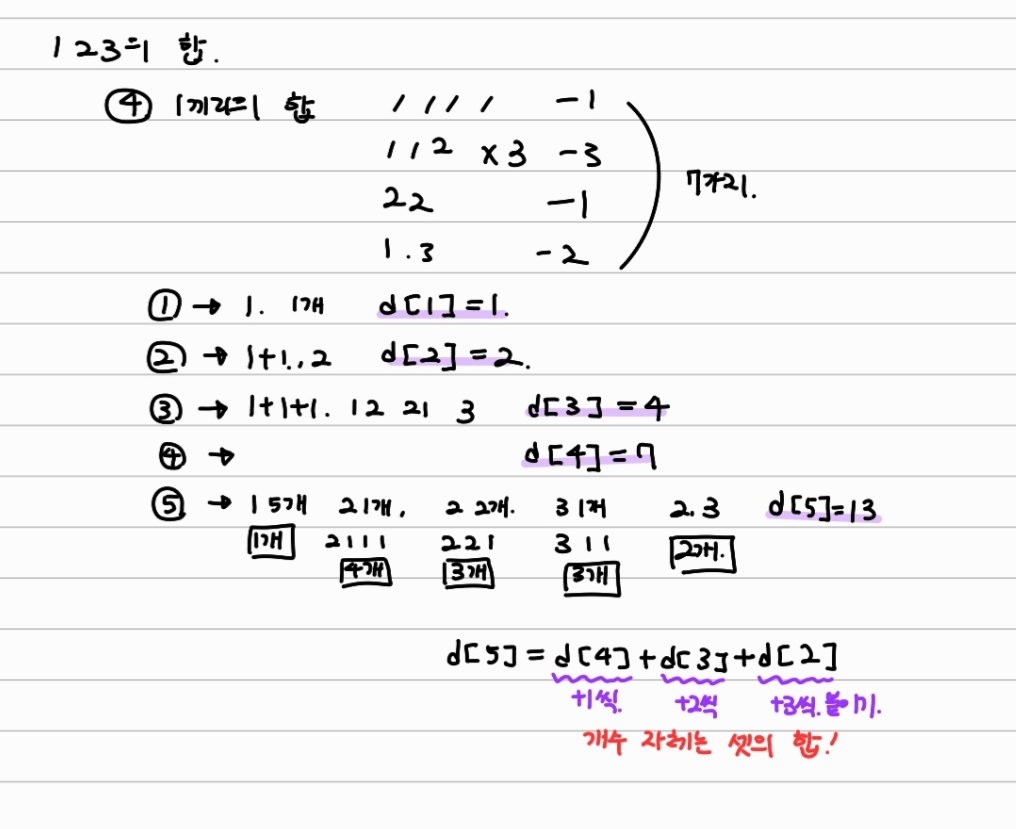 1 2 3의 합.
④ 1끼리의 합 1 1 1 1 - 1
1 1 2 x 3 - 3
2 2 - 1
1 . 3 - 2
7가지.
① → 1. 1개 d[1]=1.
② → 1+1., 2 d[2]=2.
③ → 1+1+1. 12 21 3 d[3]=4
④ → d[4]=7
⑤ → 1 5개 2 1개, 2 2개. 3 1개 2. 3 d[5]=13
1개 2111 221 311 2개.
4개 3개 3개
d[5]=d[4]+d[3]+d[2]
+1씩. +2씩 +3씩. 붙이기.
개수 자체는 셋의 합!